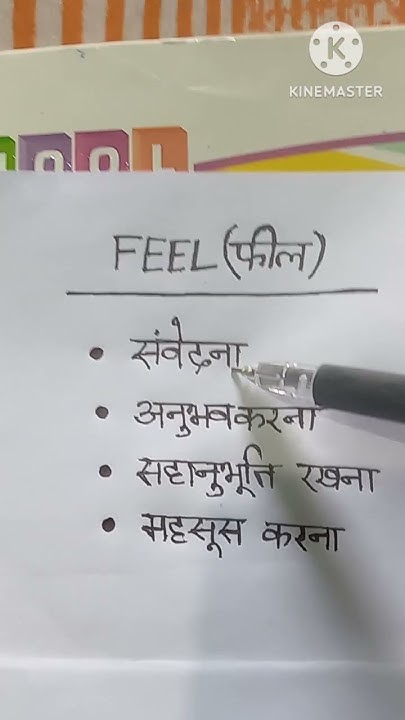 KINEMASTER
OOL
FEEL (फील)
• संवेदना
• अनुभव करना
• सहानुभूति रखना
• महसूस करना